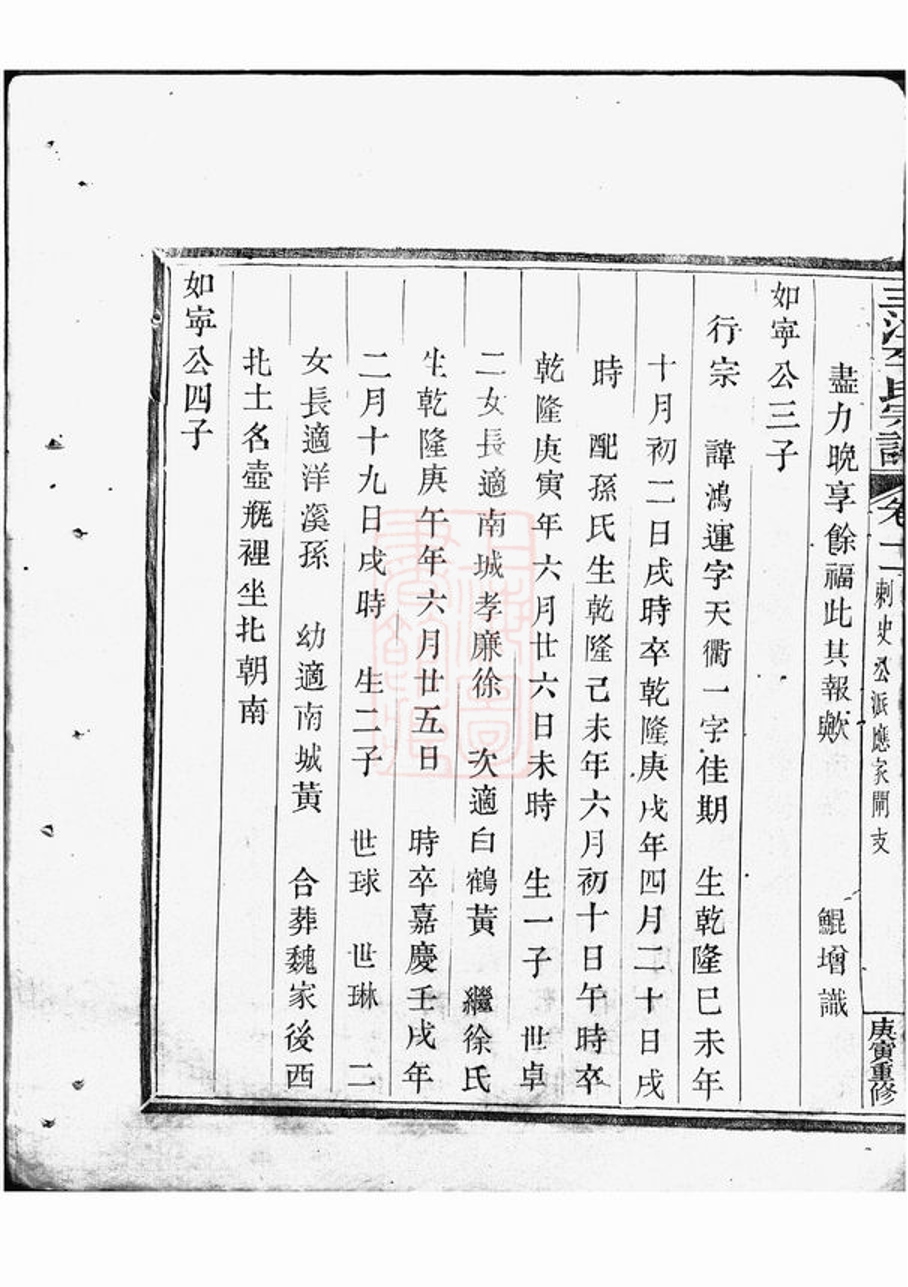 三江李氏宗譜 卷十二 刺史公派應家開支 庚寅重修
盡力晚享餘福此其報歟 鯤增識
如寧公三子
行宗 諱鴻運字天衢一字佳期 生乾隆巳未年
十月初二日戌時卒乾隆庚戌年四月二十日戌
時 配孫氏生乾隆己未年六月初十日午時卒
乾隆庚寅年六月廿六日未時 生一子 世卓
二女長適南城孝廉徐 次適白鶴黃 繼徐氏
生乾隆庚午年六月廿五日 時卒嘉慶壬戌年
二月十九日戌時 生二子 世球 世琳 二
女長適洋溪孫 幼適南城黃 合葬魏家後西
北土名壺瓶裡坐北朝南
如寧公四子